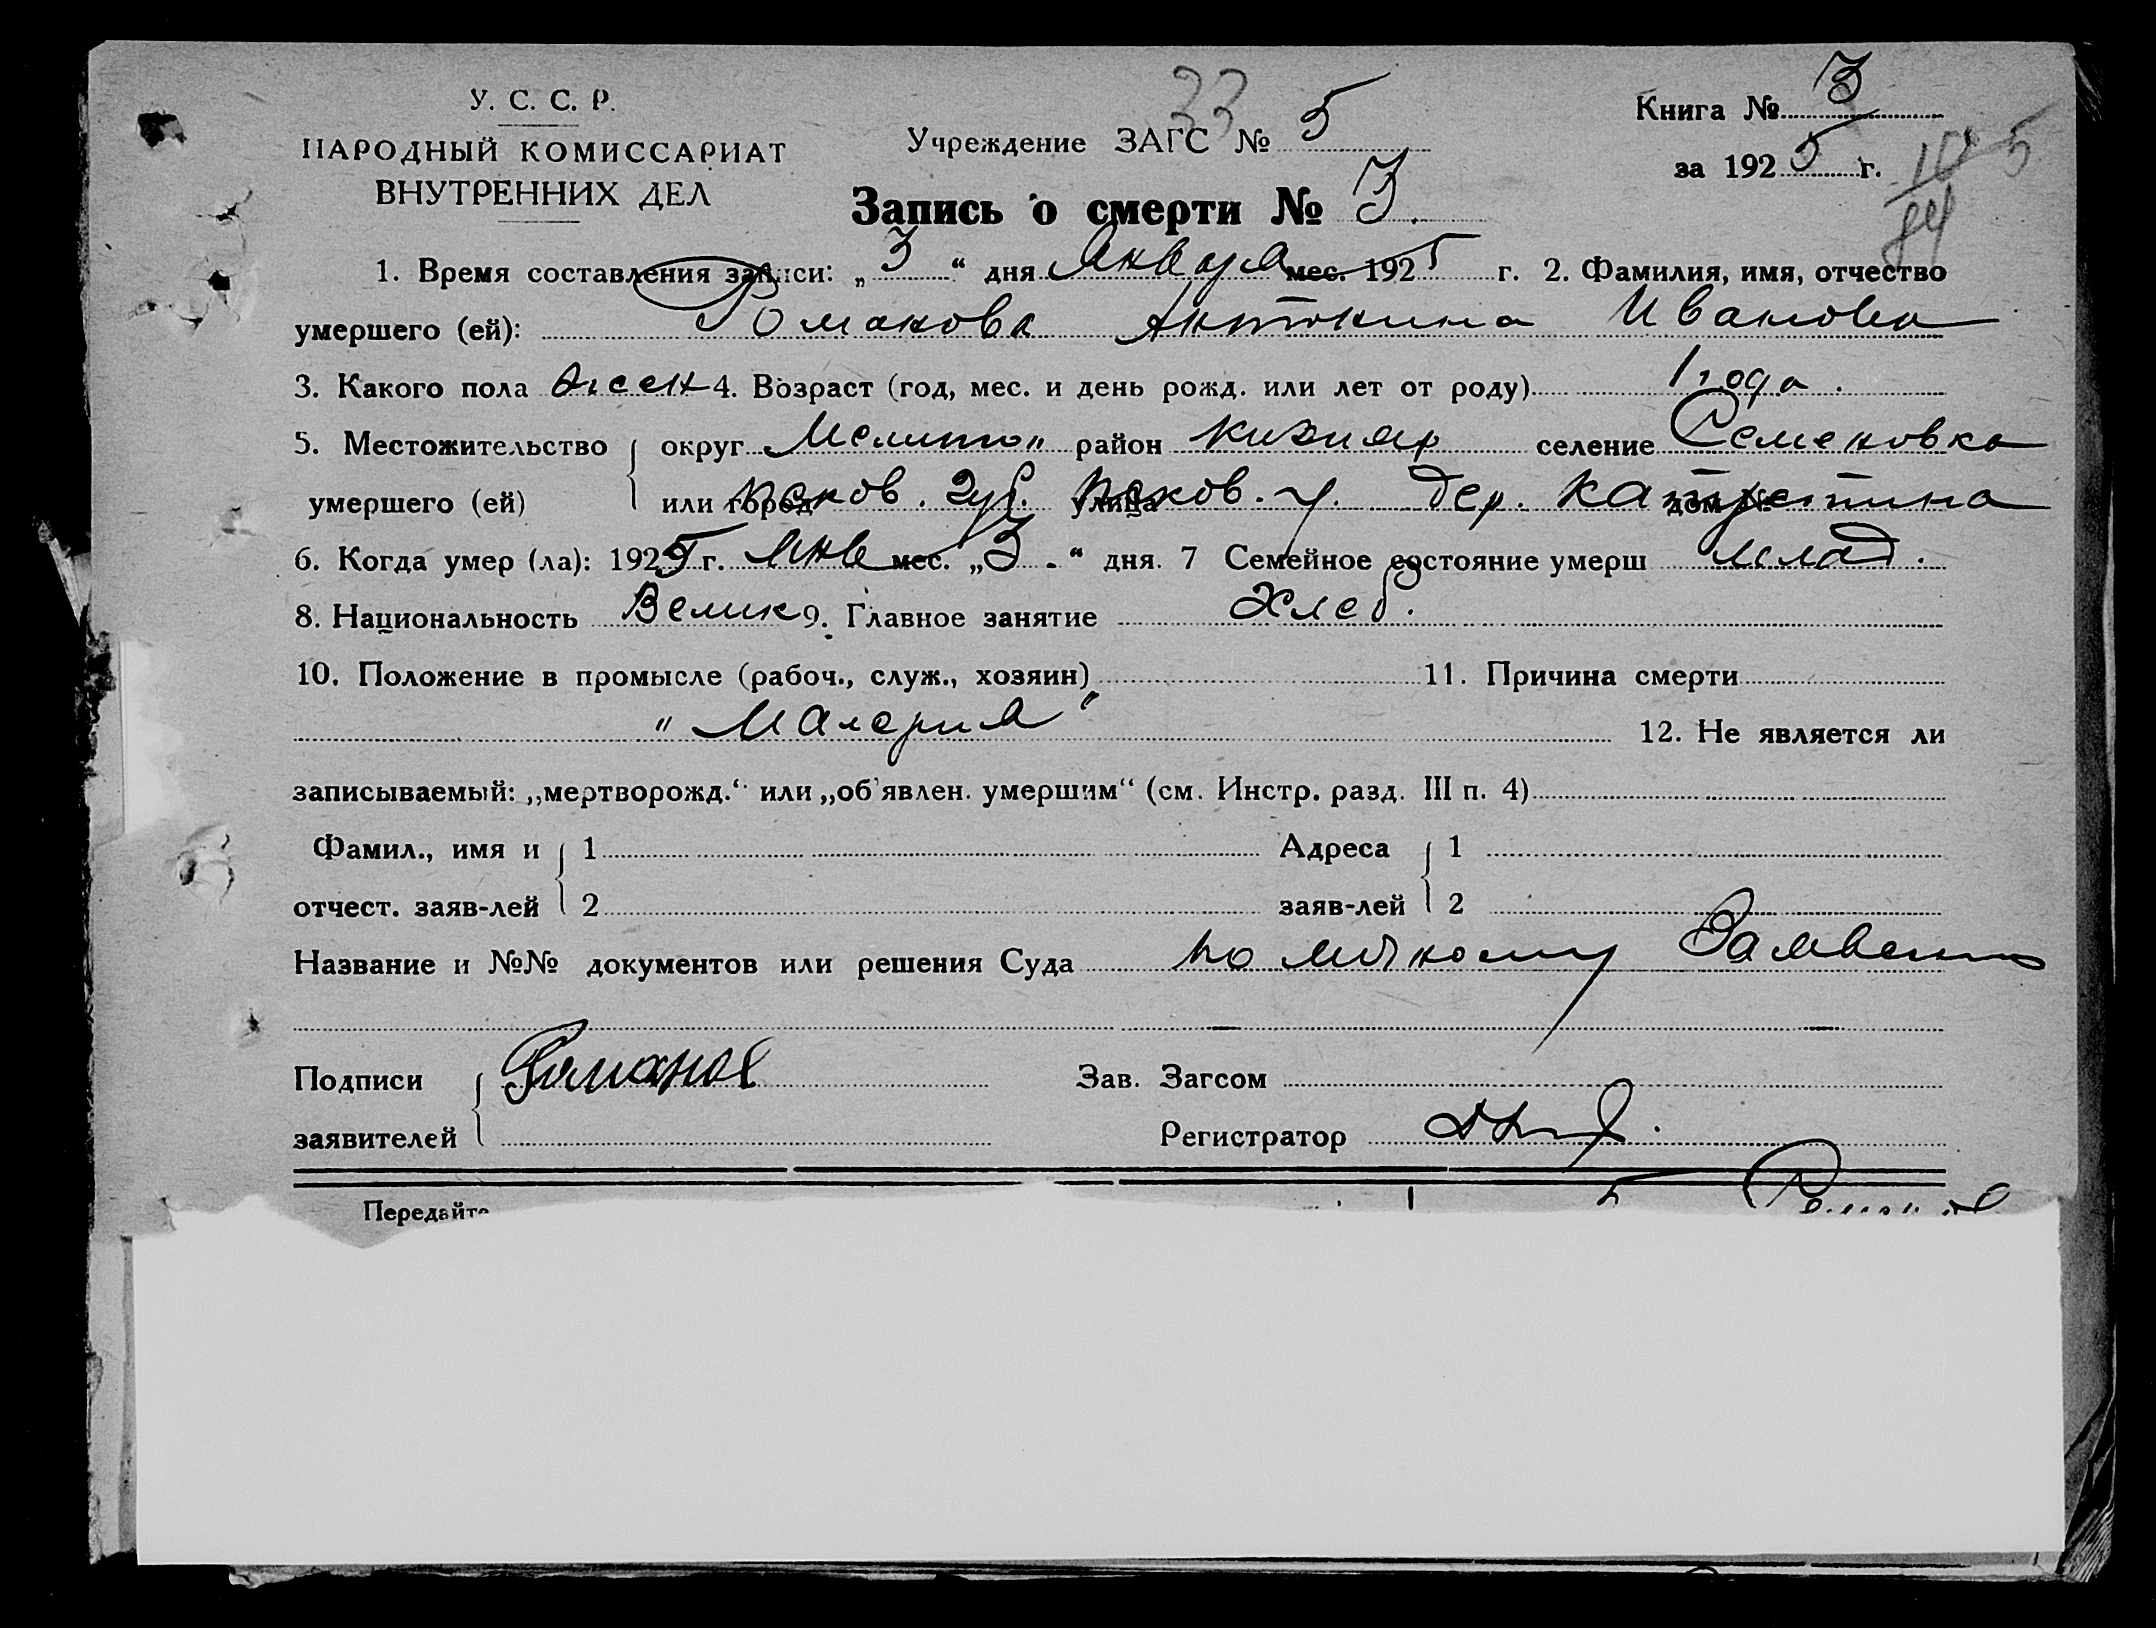 У. С. С. Р.
НАРОДНЫЙ КОМИССАРИАТ
ВНУТРЕННИХ ДЕЛ
33
Учреждение ЗАГС № 5
Книга № 3
за 1925 г.
Запись о смерти № 3.
1. Время составления записи: „3“ дня Января мес. 1925 г. 2. Фамилия, имя, отчество
умершего (ей): Романова Антонина Иванова
3. Какого пола жен 4. Возраст (год, мес. и день рожд. или лет от роду) 1 года.
5. Местожительство округ Мелито" район Кизияр селение Семеновка
умершего (ей) или город Псков. Губ. улица Псков. у. дер. дом №
6. Когда умер (ла): 1925 г. Янв мес. „3.“ дня. 7 Семейное состояние умерш млад.
8. Национальность Велик 9. Главное занятие Хлеб.
10. Положение в промысле (рабоч., служ., хозяин) 11. Причина смерти
"Малерия" 12. Не является ли
записываемый: „мертворожд.“ или „об'явлен. умершим“ (см. Инстр. разд. III п. 4)
Фамил., имя и 1 Адреса 1
отчест. заяв-лей 2 заяв-лей 2
Название и №№ документов или решения Суда по личному Заявлению
Подписи Романов Зав. Загсом
заявителей Регистратор
Передайте